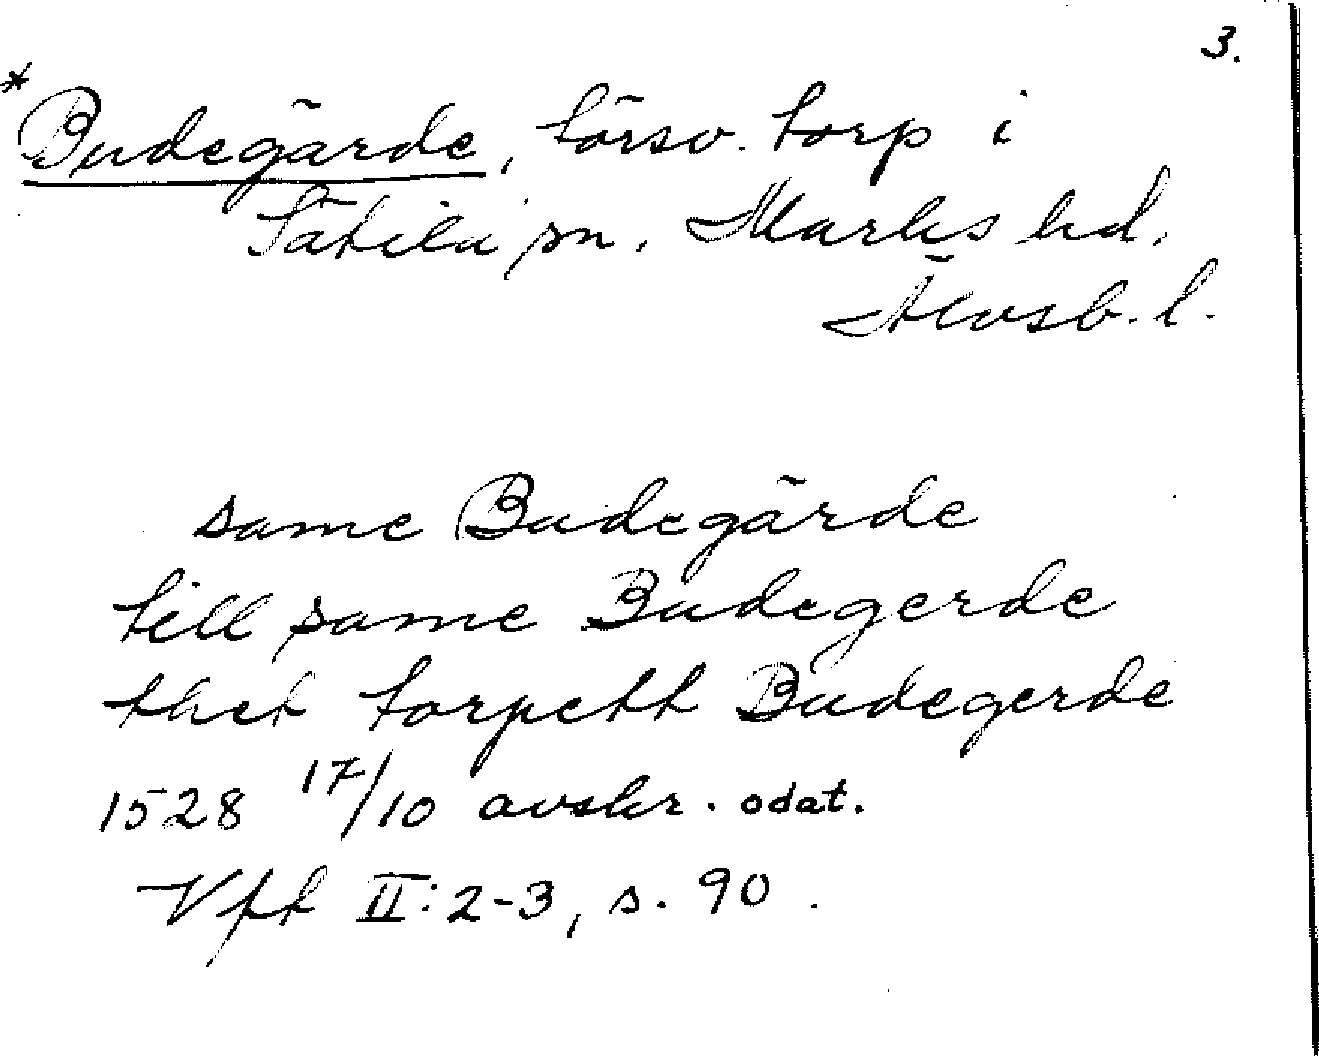 3.
*Budegärde, försv. torp i
Sätila sn, Marks hd,
Älvsb. l.
same Budegärde
till same Budegerde
thet torpett Budegerde
1528 17/10 avskr. odat.
Vft II: 2-3, s. 90.